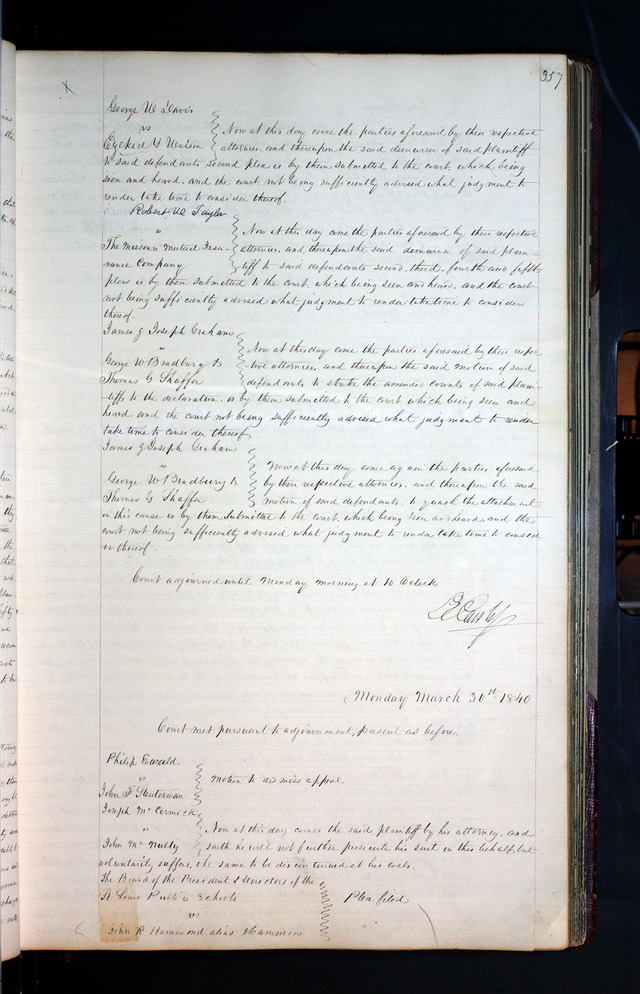 357
George W Davis
vs
Ezekiel Y Watson
Now at this day come the parties aforesaid by their respective
attornies. and thereupon the said demurrer of said plaintiff
to said defendants second plea is by them submitted to the court. which being
seen and heard. and the court not being sufficiently advised what judgment to
render take time to consider thereof.
Robert W Taylor
"
The Missouri Mutual Insu-
rance Company
Now at this day come the parties aforesaid by their respective
attornies. and thereupon the said demurrer of said plain-
tiff to said defendants second. third. fourth and fifth
pleas is by them submitted to the court. which being seen and heard. and the court
not being sufficiently advised what judgment to render take time to consider
thereof.
James & Joseph Graham
"
George W Bradbury &
Thomas G Shaffer
Now at this day come the parties aforesaid by their respec
tive attornies. and thereupon the said motion of said
defendants to strike the amended counts of said plain-
tiffs to the declaration. is by them submitted to the court which being seen and
heard. and the court not being sufficiently advised what judgment to render
take time to consider thereof.
James & Joseph Graham
"
George W Bradbury &
Thomas G Shaffer
Now at this day come again the parties aforesaid
by their respective attornies. and thereupon the said
motion of said defendants. to quash the attachment
in this cause is by them submitted to the court. which being seen and heard. and the
court not being sufficiently advised what judgment to render take time to consid
er thereof.
Court adjourned until Monday morning at 10 Oclock
Monday March 30st 1840
Court met pursuant to adjournment, present as before.
Philip Ewald
vs
John F
Motion to dismiss appeal
Joseph Mc Cormick
"
John Mc Nulty
Now at this day comes the said plaintiff by his attorney. and
saith he will not further prosecute his suit in this behalf. but
voluntarily suffers the same to be discontinued at his costs.
The Board of the President & Directors of the
St Louis Public Schools
vs
John R Hammond alias Hammon
Plea filed